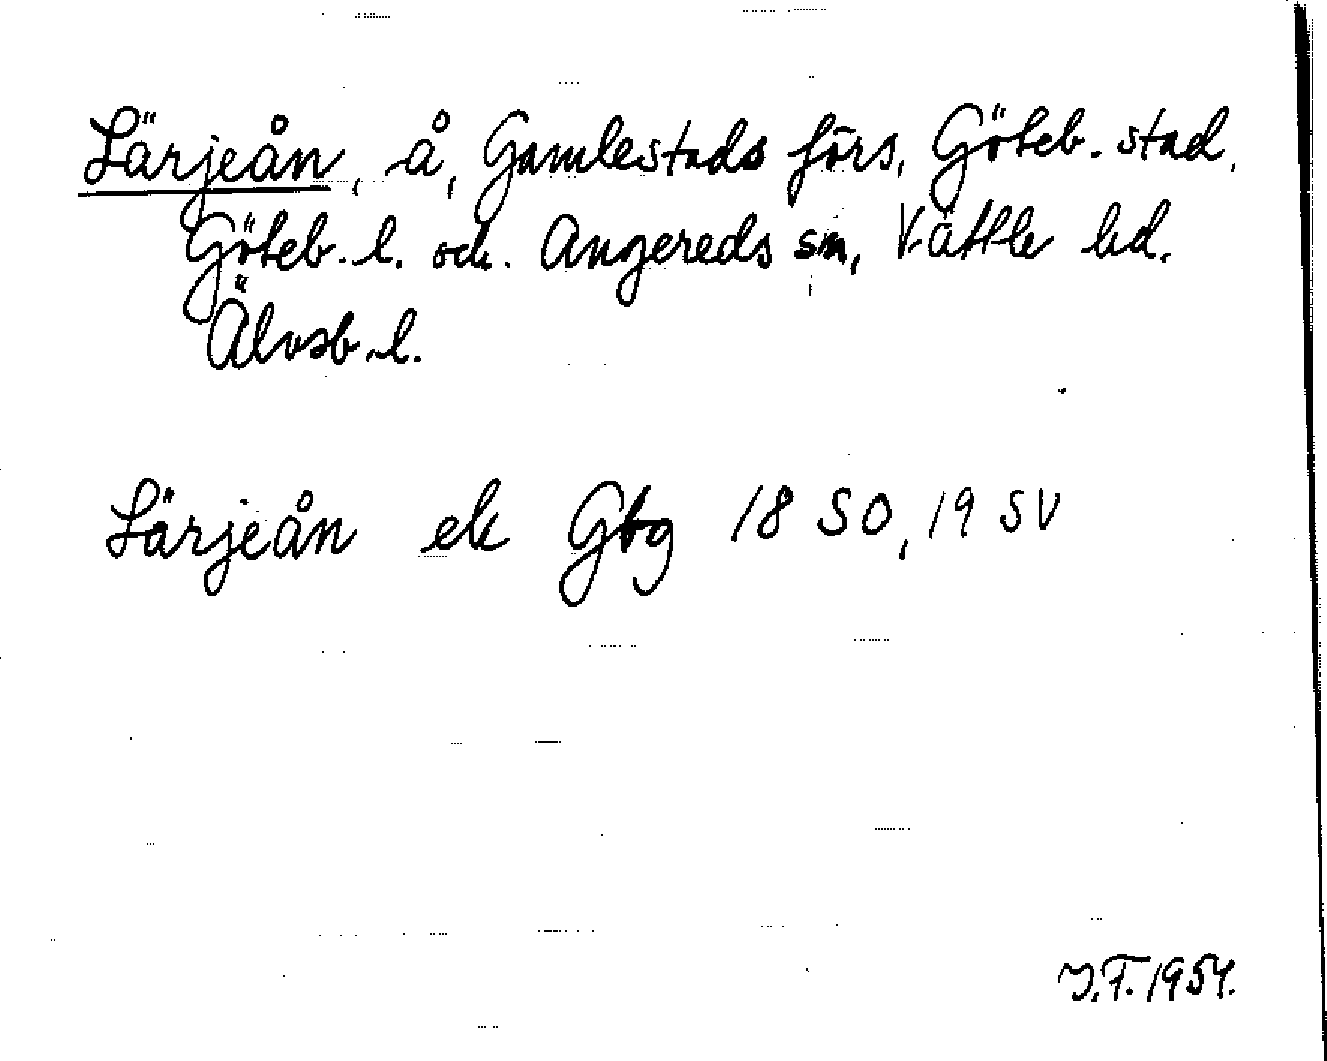 Lärjeån, å, Gamlestads förs, Göteb. stad,
Göteb. l. och Angereds sn, Vättle hd.
Älvsb. l.
Lärjeån ek Gbg 18 SO, 19 SV
I.F. 1954.